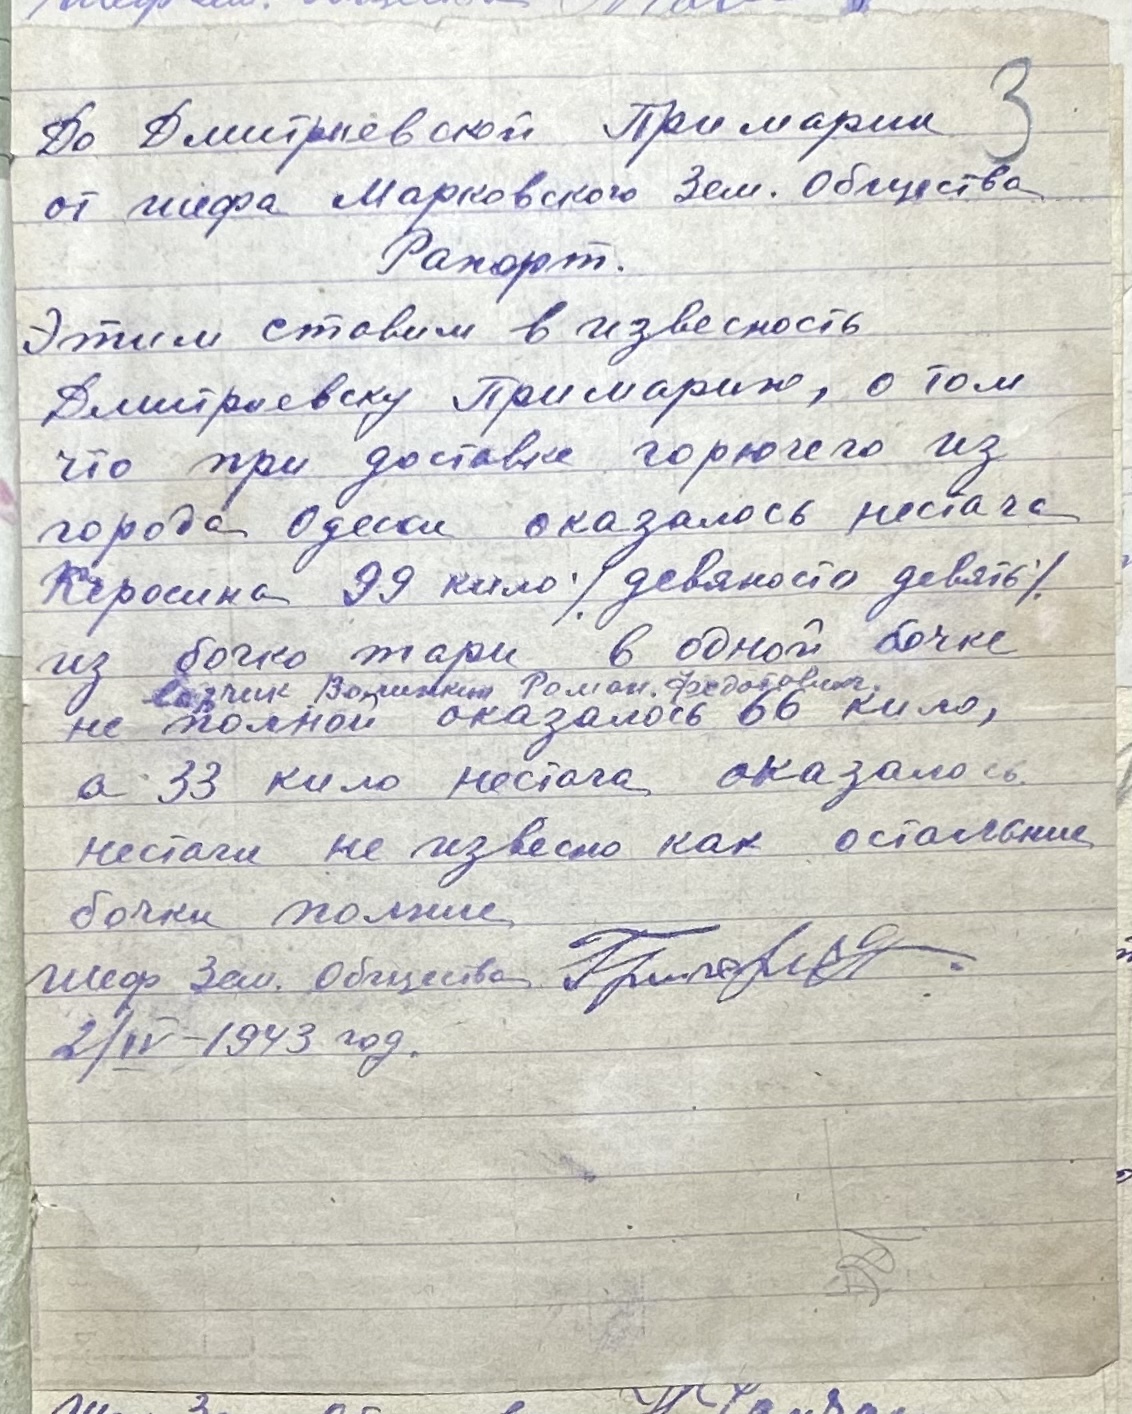 3
До Дмитриевской Примарии
от шефа Марковского Зем. Общества
Рапорт.
Этим ставим в извесность
Дмитриевску Примарию, о том
что при доставке горючего из
города Одеси оказалось нестача
Керосина 99 кило ·/. девяносто девять ·/.
из бочко тари в одной бочке
возчик Роман. Федотович.
не полной оказалось 66 кило,
а 33 кило нестача оказалось
нестачи не извесно как остальние
бочки полние
Шеф Зем. Общества
2/IV-1943 год.